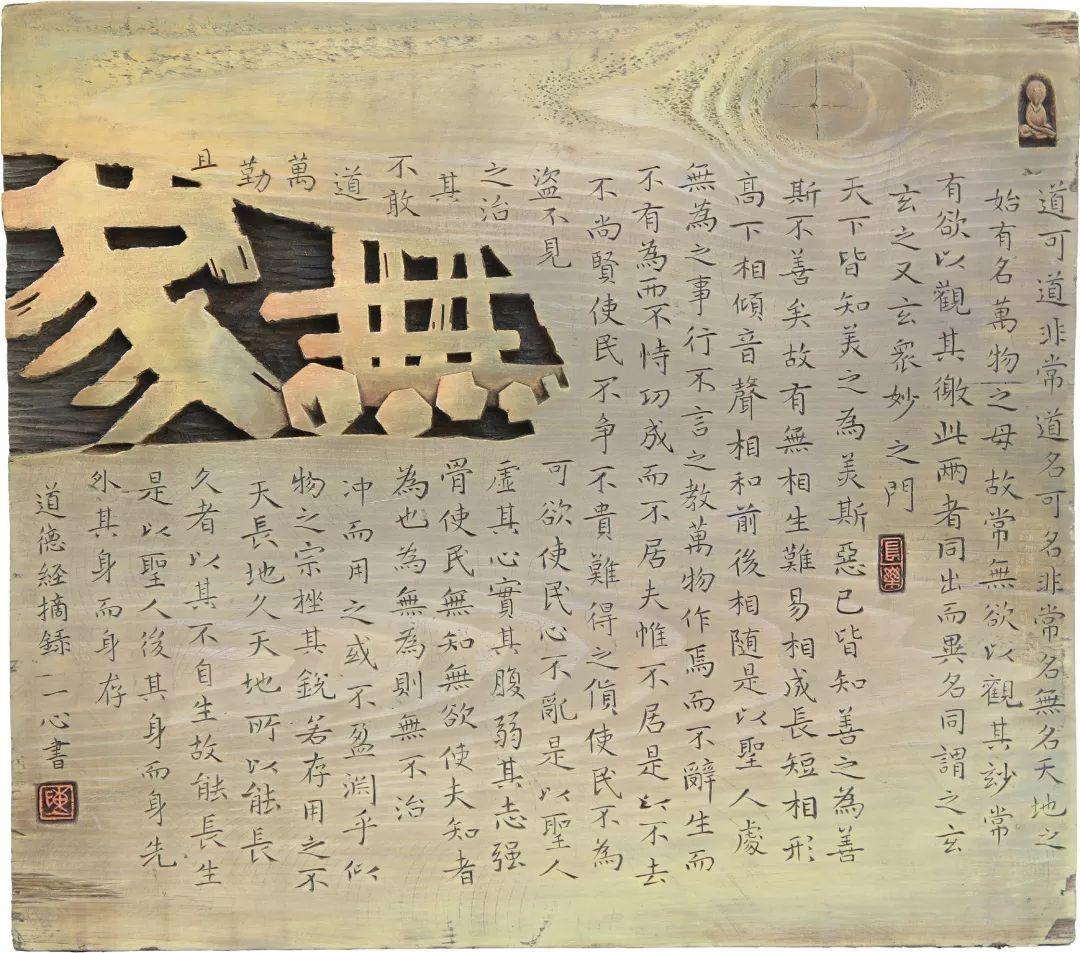 道可道非常道名可名非常名無名天地之
始有名萬物之母故常無欲以觀其玅常
有欲以觀其徼此兩者同出而異名同謂之玄
玄之又玄衆妙之門
長樂
天下皆知美之為美斯惡已皆知善之為善
斯不善矣故有無相生難易相成長短相形
高下相傾音聲相和前後相随是以聖人處
無為之事行不言之教萬物作焉而不辭生而
不有為而不恃功成而不居夫惟不居是以不去
不尚賢使民不争不貴難得之貨使民不為
盜不見可欲使民心不亂是以聖人
之治虛其心實其腹弱其志强
其骨使民無知無欲使夫知者
不敢為也為無為則無不治
道冲而用之或不盈渊乎似
萬物之宗挫其銳若存用之不
勤天長地久天地所以能長
且久者以其不自生故能長生
是以聖人後其身而身先
外其身而身存
道德経摘録二心書
無